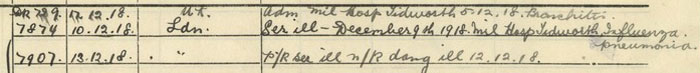 789. 12.12.18. Adm Mil Hosp Tidworth 5.12.18. Bronchitis.
7874 10.12.18. Ldn. Ser ill - December 9th 1918. Mil Hosp Tidworth Influenza
Pneumonia
7907. 13.12.18. " P/R ser ill n/R dang ill 12.12.18.